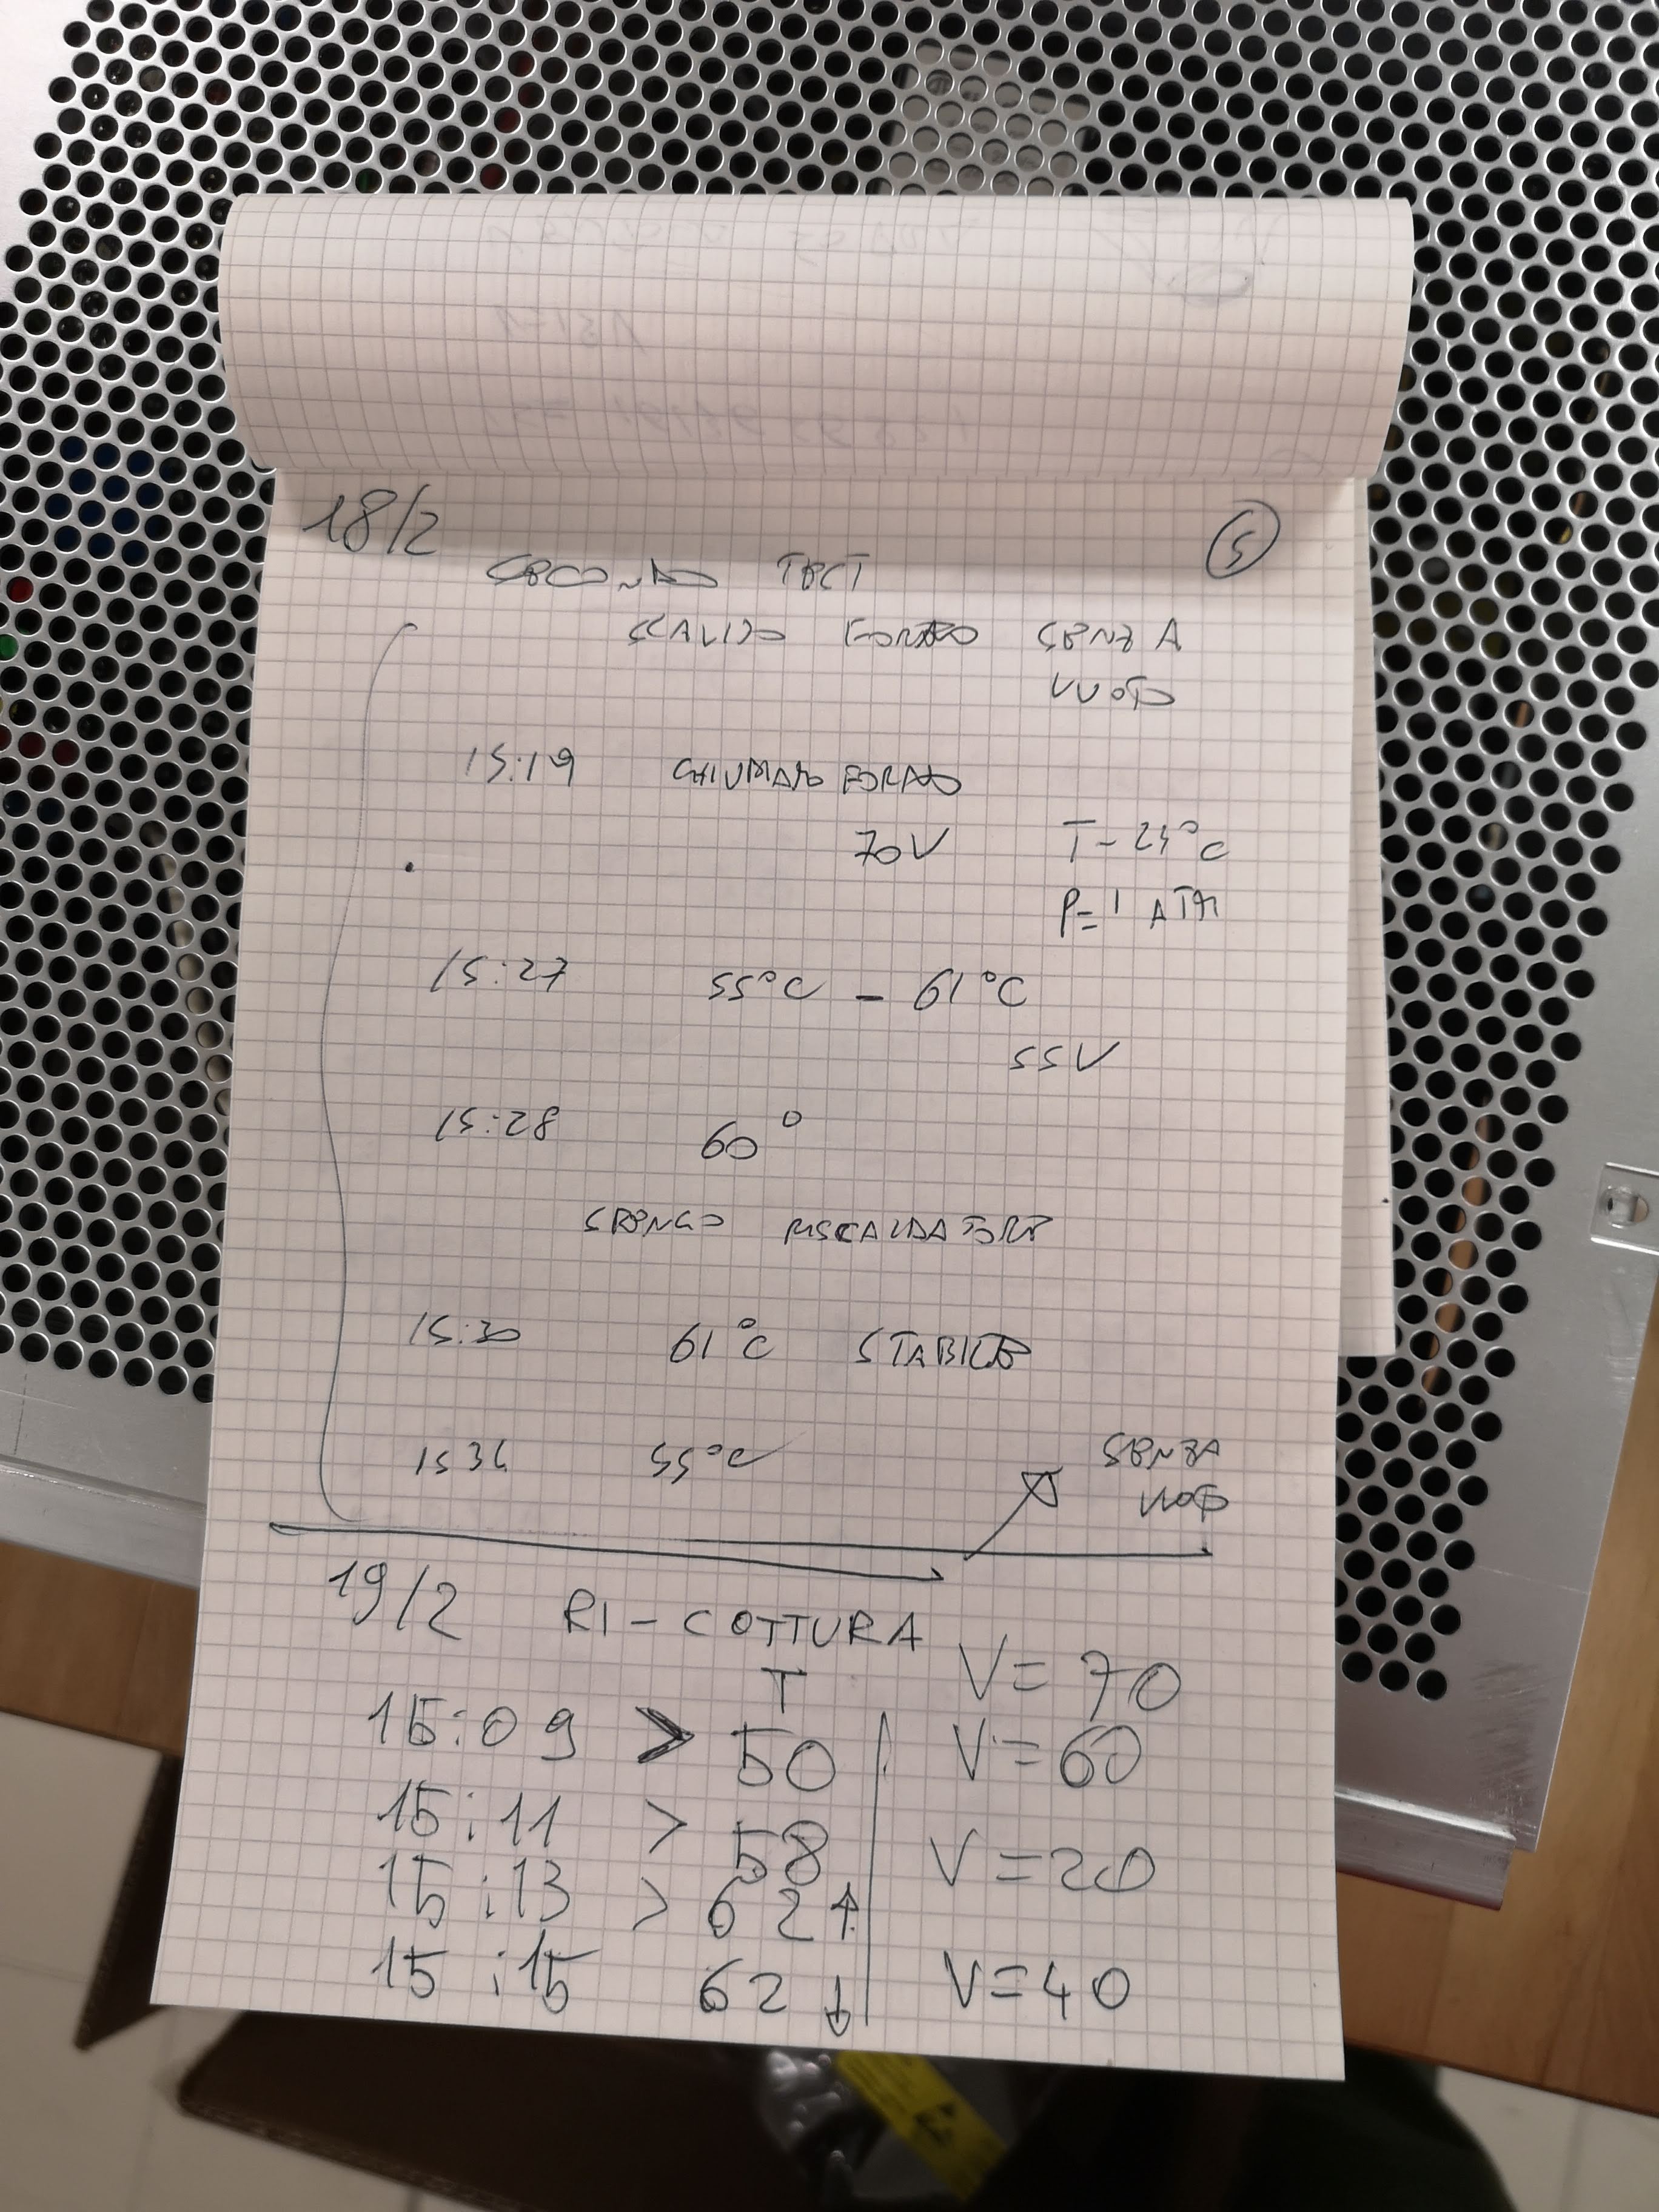 18/2
5
SECONDO TEST
SCALDO FORNO SENZA
VUOTO
15:19 CHIUDIAMO FORNO
70V T = 24°C
P = 1 ATM
15:27 55°C - 61°C
55V
15:28 60°
SPENGO RISCALDATORE
15:30 61°C STABILE
15 36 55°C
SENZA
VUOTO
19/2 RI-COTTURA
T V = 70
15:09 > 50 V = 60
15:11 > 58
15:13 > 62 ↑ V = 20
15:15 62 ↓ V = 40